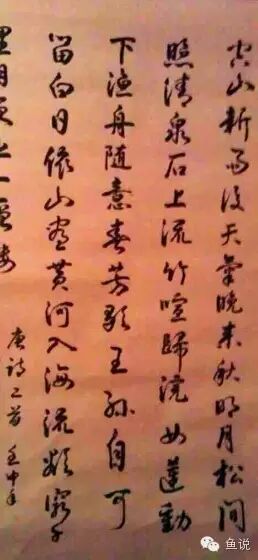 空山新雨後天氣晚来秋明月松间
照清泉石上流竹喧歸浣女蓮動
下渔舟随意春芳歇王孫自可
留白日依山盡黄河入海流欲窮千
里目更上一层楼
唐詩二首 壬申年
鱼说